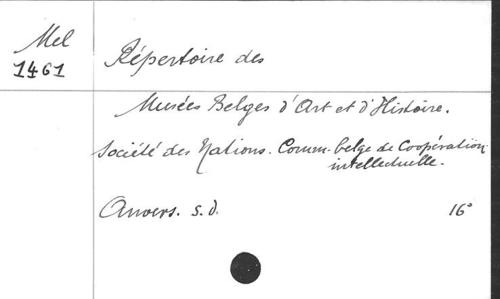 Mel
1461
Répertoire des
Musées Belges d'Art et d'Histoire.
Société des Nations. Comm. belge de Coopération
intellectuelle.
Anvers. s.d.
16°